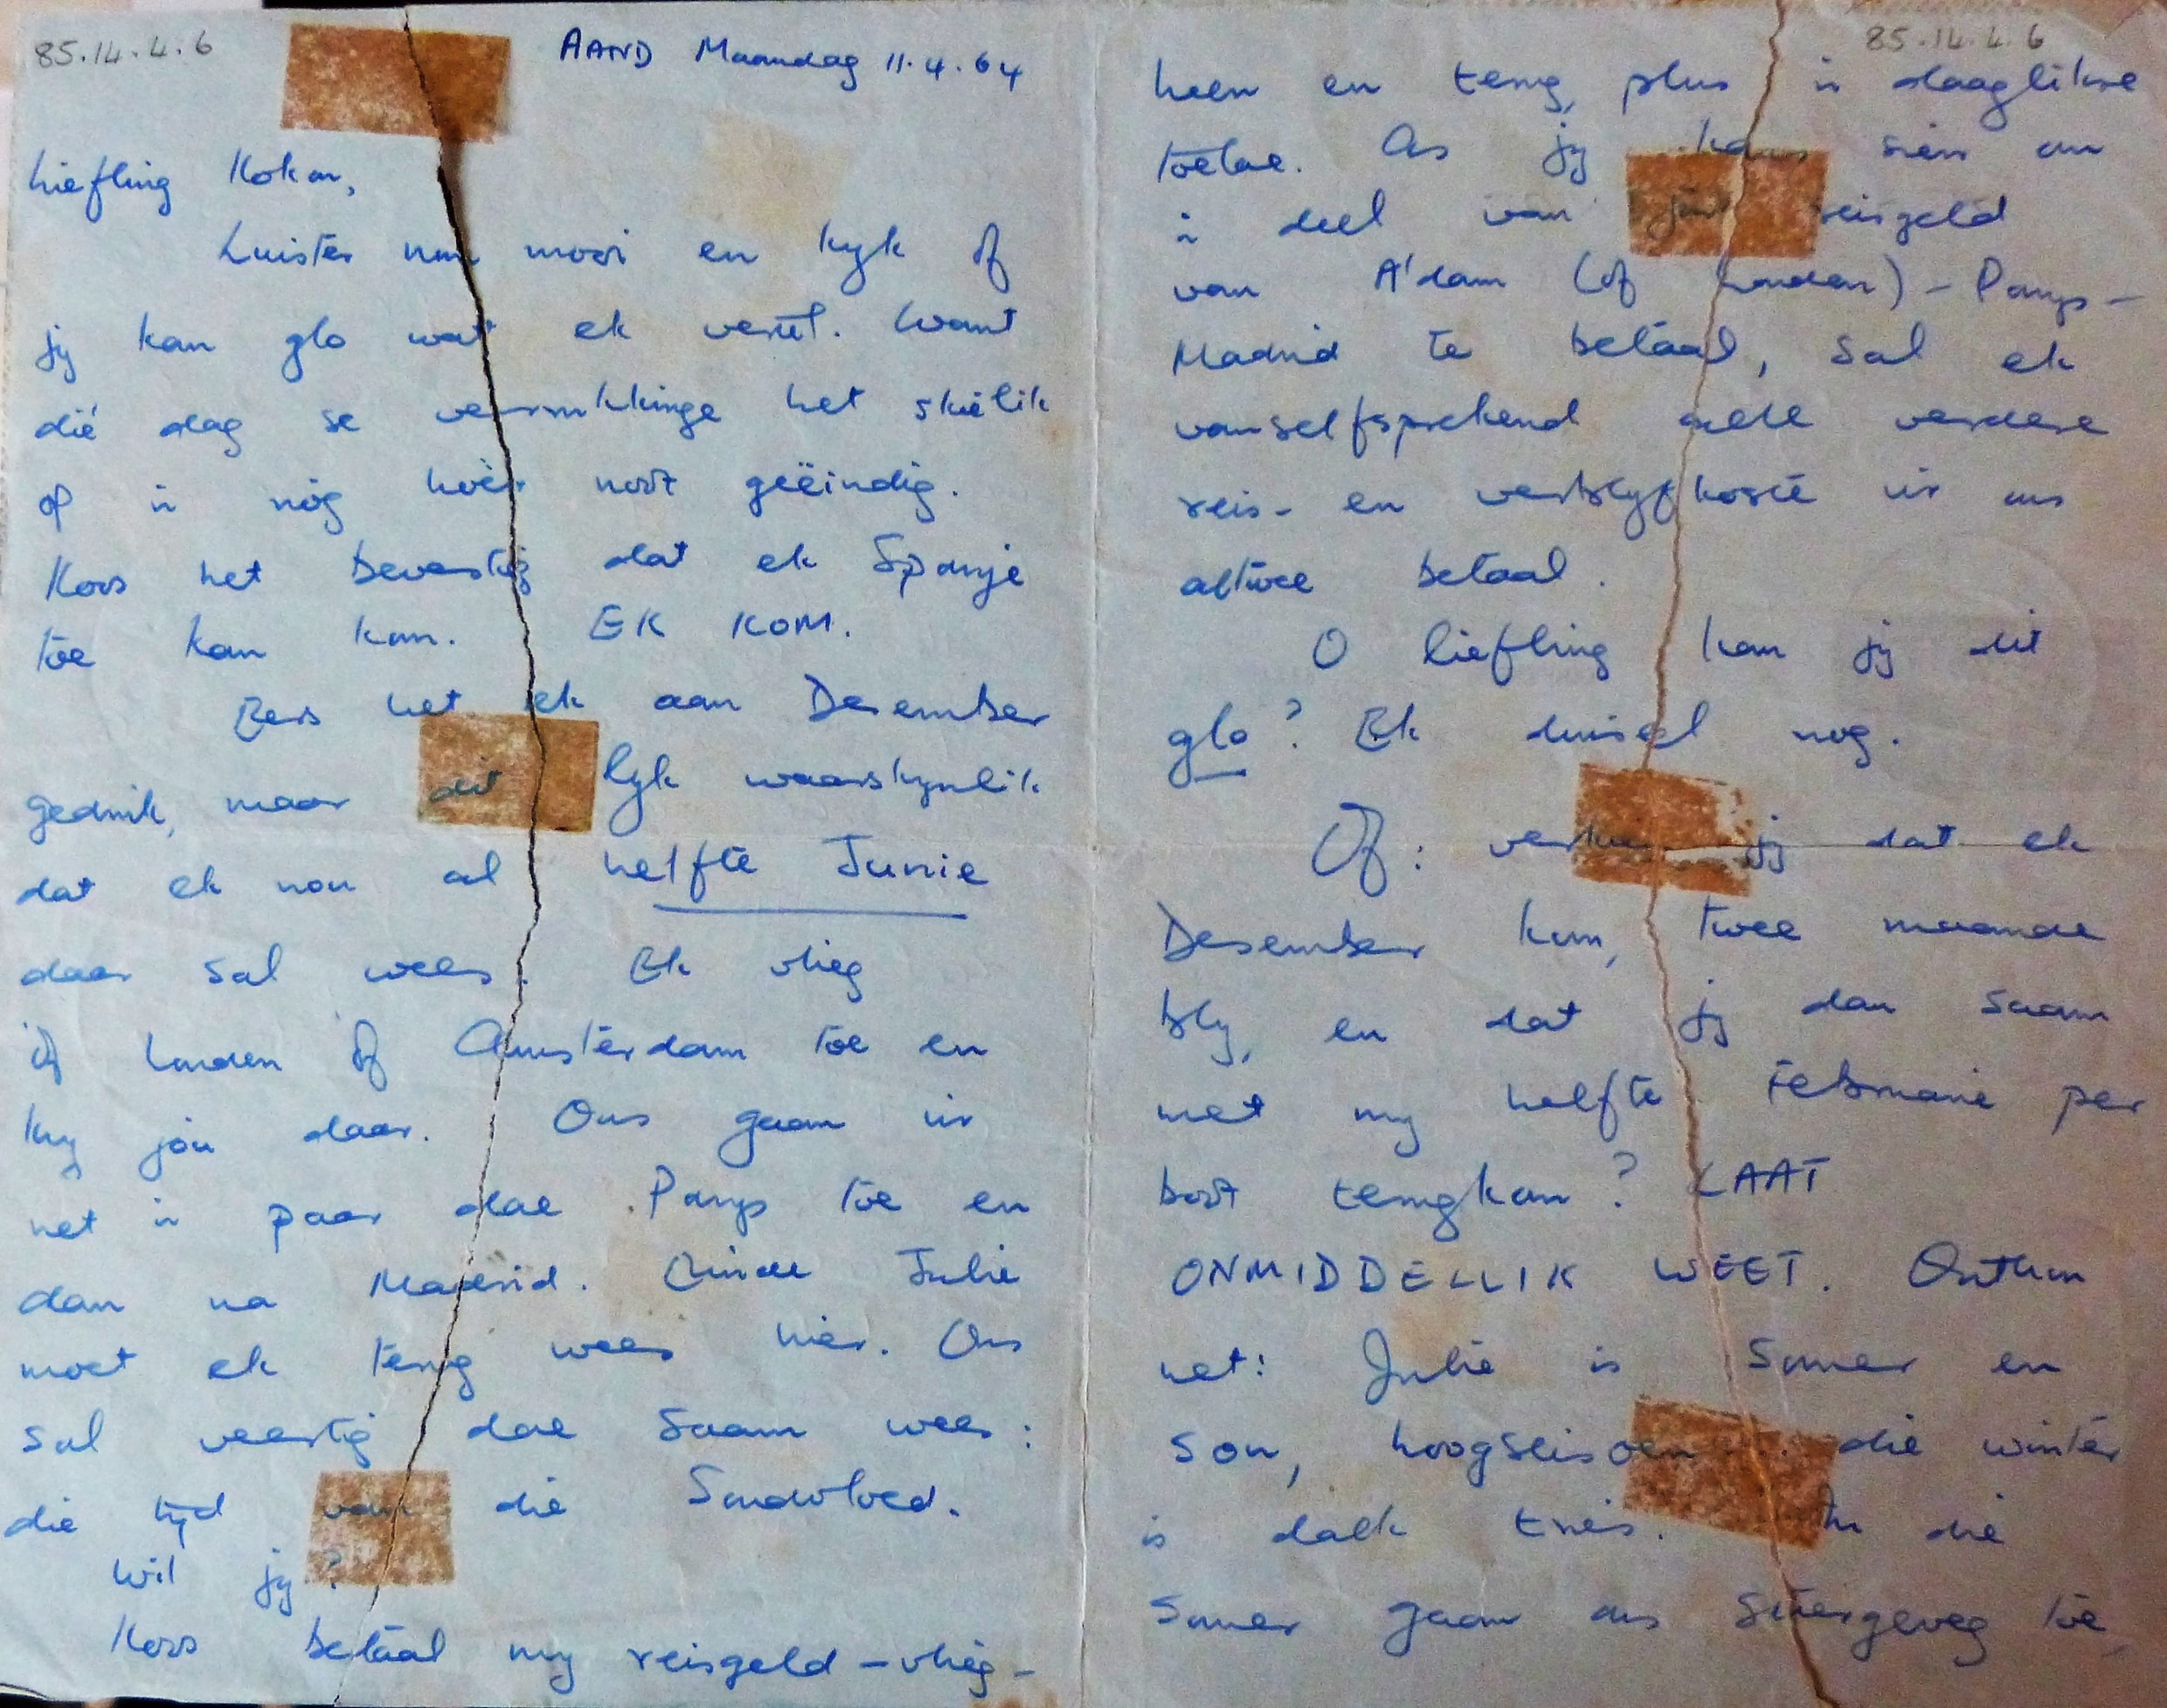 85.14.4.6
AAND Maandag 11.4.64
Liefling Kokon,
Luister nou mooi en kyk of
jy kan glo wat ek vertel. Want
dié dag se verrukkinge het skielik
op 'n nóg hoër noot geëindig.
Koos het bevestig dat ek Spanje
toe kan kom. EK KOM.
Eers het ek aan Desember
gedink, maar dit lyk waarskynlik
dat ek nou al helfte Junie
daar sal wees. Ek vlieg
óf Londen óf Amsterdam toe en
kry jóú daar. Ons gaan vir
net 'n paar dae Parys toe en
dan na Madrid. Einde Julie
moet ek terug wees hier. Ons
sal veertig dae saam wees:
die tyd van die Sondvloed.
Wil jy?
Koos betaal my reisgeld – vlieg –
85.14.4.6
heen en terug, plus 'n daaglikse
toelae. As jy kans sien om
'n deel van jóú reisgeld
van A'dam (of Londen) – Parys –
Madrid te betaal, sal ek
vanselfsprekend alle verdere
reis- en verblyfkoste vir ons
altwee betaal.
O liefling kan jy dit
glo? Ek duisel nog.
Óf: verkies jy dat ek
Desember kom, twee maande
bly, en dat jy dan saam
met my helfte Februarie per
boot terugkom? LAAT
ONMIDDELLIK WEET. Onthou
net: Julie is somer en
son, hoogseisoen. die winter
is dalk triés. In die
somer gaan ons stiergeveg toe,